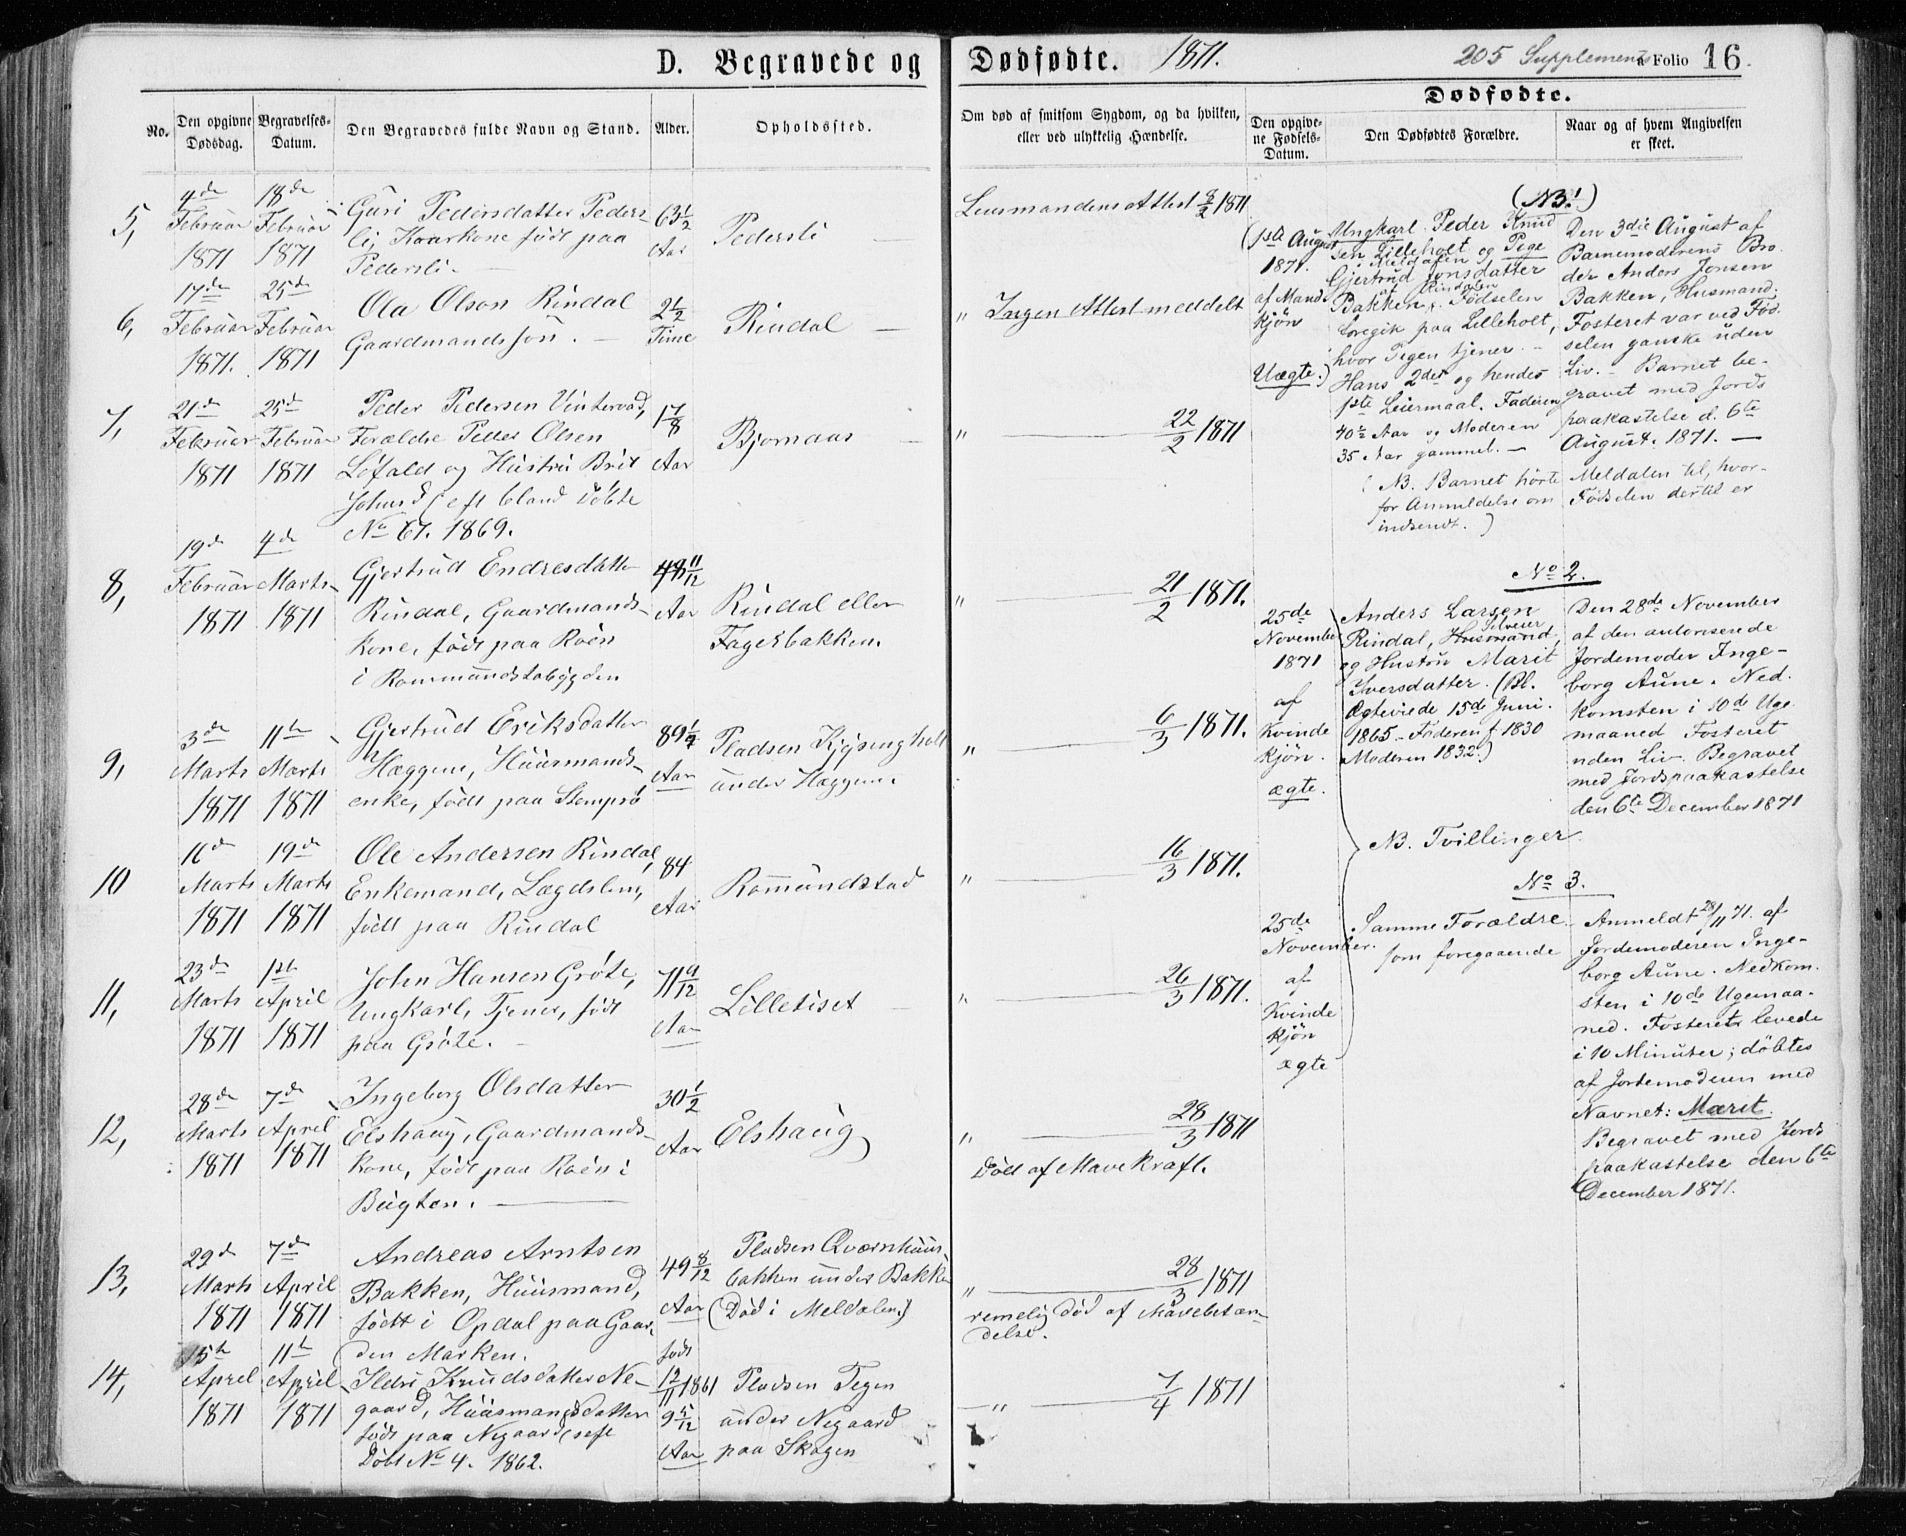 D. Begravede og Dødfødte. 1871. 205 Supplements a Folio 16.
No.
Den opgivne Dødsdag.
Begravelses-Datum.
Den Begravedes fulde Navn og Stand.
Alder.
Opholdssted.
Om død af smitsom Sygdom, og da hvilken,
eller ved ulykkelig Hændelse.
Dødfødte.
Den opgivne Fødsels-Datum.
Den Dødfødtes Forældre.
Naar og af hvem Angivelsen
er skeet.
5,
4de
Februar
1871
18de
Februar
1871
Guri Pedersdatter Peders-
li, Kaarkone født paa
Pedersli.
63 1/2
Aar
Pedersli
Lensmandens Attest 9/2 1871
6,
17de
Februar
1871.
25de
Februar
1871
Ola Olson Rindal
Gaardmandssøn.
2 1/2
Time
Rindal
" Ingen Attest meddelt
7,
21de
Februar
1871
25de
Februar
1871
Peder Pedersen Vintervad,
Forældre Peder Olsen
Løfald og Hustru Brit
Johnsd (eft bland Døbte
No 67. 1869.
1 7/8
Aar
Bjørnaas
" 22/2 1871
8,
19de
Februar
1871
4de
Marts
1871
Gjertrud Endresdatter
Rindal, Gaardmands-
Kone, født paa Roën
i Rommundstabygden
48 11/12
Aar
Rindal eller
Fagerbakken.
" 21/2 1871.
9,
3de
Marts
1871
11te
Marts
1871
Gjertrud Eriksdatter
Hæggem, Huusmands-
enke, født paa Stempsø
89 1/2
Aar
Pladsen Kjøsingholt
under Hæggem.
" 6/3 1871.
10
16de
Marts
1871
19de
Marts
1871
Ole Andersen Rindal,
Enkemand, Lægdslem,
født paa Rindal
84
Aar
Romundstad
" 16/3 1871.
11,
23de
Marts
1871
1ste
April
1871
John Hansen Grøte,
Ungkarl, Tjener, født
paa Grøte.
71 9/12
Aar
Lilletiset
" 26/3 1871.
12,
28de
Marts
1871
7de
April
1871
Ingeborg Olsdatter
Elshaug, Gaardmands-
Kone, født paa Roën i
Bugten.
30 1/2
Aar
Elshaug
" 28/3 1871
Død af Mavekraft.
13,
29de
Marts
1871
7de
April
1871
Andreas Arntsen
Bakken, Huusmand,
født i Opdal paa Gaar-
den Marken.
49 8/12
Aar
Pladsen Qvernhuus-
bakken under Bakken
(Død i Meldalen)
" 28/3 1871
remelig død af Mavebetæn-
delse.
14,
5te
April
1871
11te
April
1871
Ildri Knudsdatter Ne-
gaard, Huusmandsdatter
født paa Negaard (seft
Døbt No 4. 1862.
født
12/11 1861
9 5/12
Aar
Pladsen Tegen
under Negaard
paa Skogen
" 7/4 1871
(No 1)
(1ste August
1871.
af Mand-
kjøn
Uægte.)
Ungkarl Peder Knud
sen Lilleholt og Pige
i Meldalen
Gjertrud Jonsdatter
Bakken i Rindalen. Fødselen
foregik paa Lilleholt,
hvor Pigen tjener.
Hans 2det og hendes
1ste Leiermaal. Faderen
40 1/2 Aar og Moderen
35 Aar gammel.
Den 3die August af
Barnemoderens Bro
der Anders Jonsen
Bakken, Husmand.
Fosteret var ved Fød
selen ganske uden
Liv. Barnet be-
gravet med Jords
paakastelse d. 6te
August. 1871.
( NB. Barnet hørte Meldalen til, hvor-
for Anmeldelse om Fødselen dertil er
indsendt. )
No 2.
25de
November
1871
af
Kvinde
kjøn.
ægte.
Anders Larsen
Rindal, Husmand, Selveier
og Hustru Marit
Iversdatter. (Bl.
Ægteviede 15de Juni.
1865 - Faderen f 1830
Moderen 1832.)
Den 28de November
af den autoriserede
Jordemoder Inge-
borg Aune. Ned
komsten i 10de Uge
maaned Fosteret
uden Liv. Begravet
med Jordspaakastelse
den 6te December 1871
NB. Tvillinger.
No 3.
25de
November.
af
Kvinde
kjøn
ægte
Samme Forældre
som foregaaende
Anmeldt 28/11 71. af
Jordemoderen Inge-
borg Aune. Nedkom-
sten i 10de Ugemaa-
ned. Fosteret levede
i 10 Minuter; døbtes
af Jordemoderen med
Navnet: Marit.
Begravet med Jords
paakastelse den 6te
December 1871.